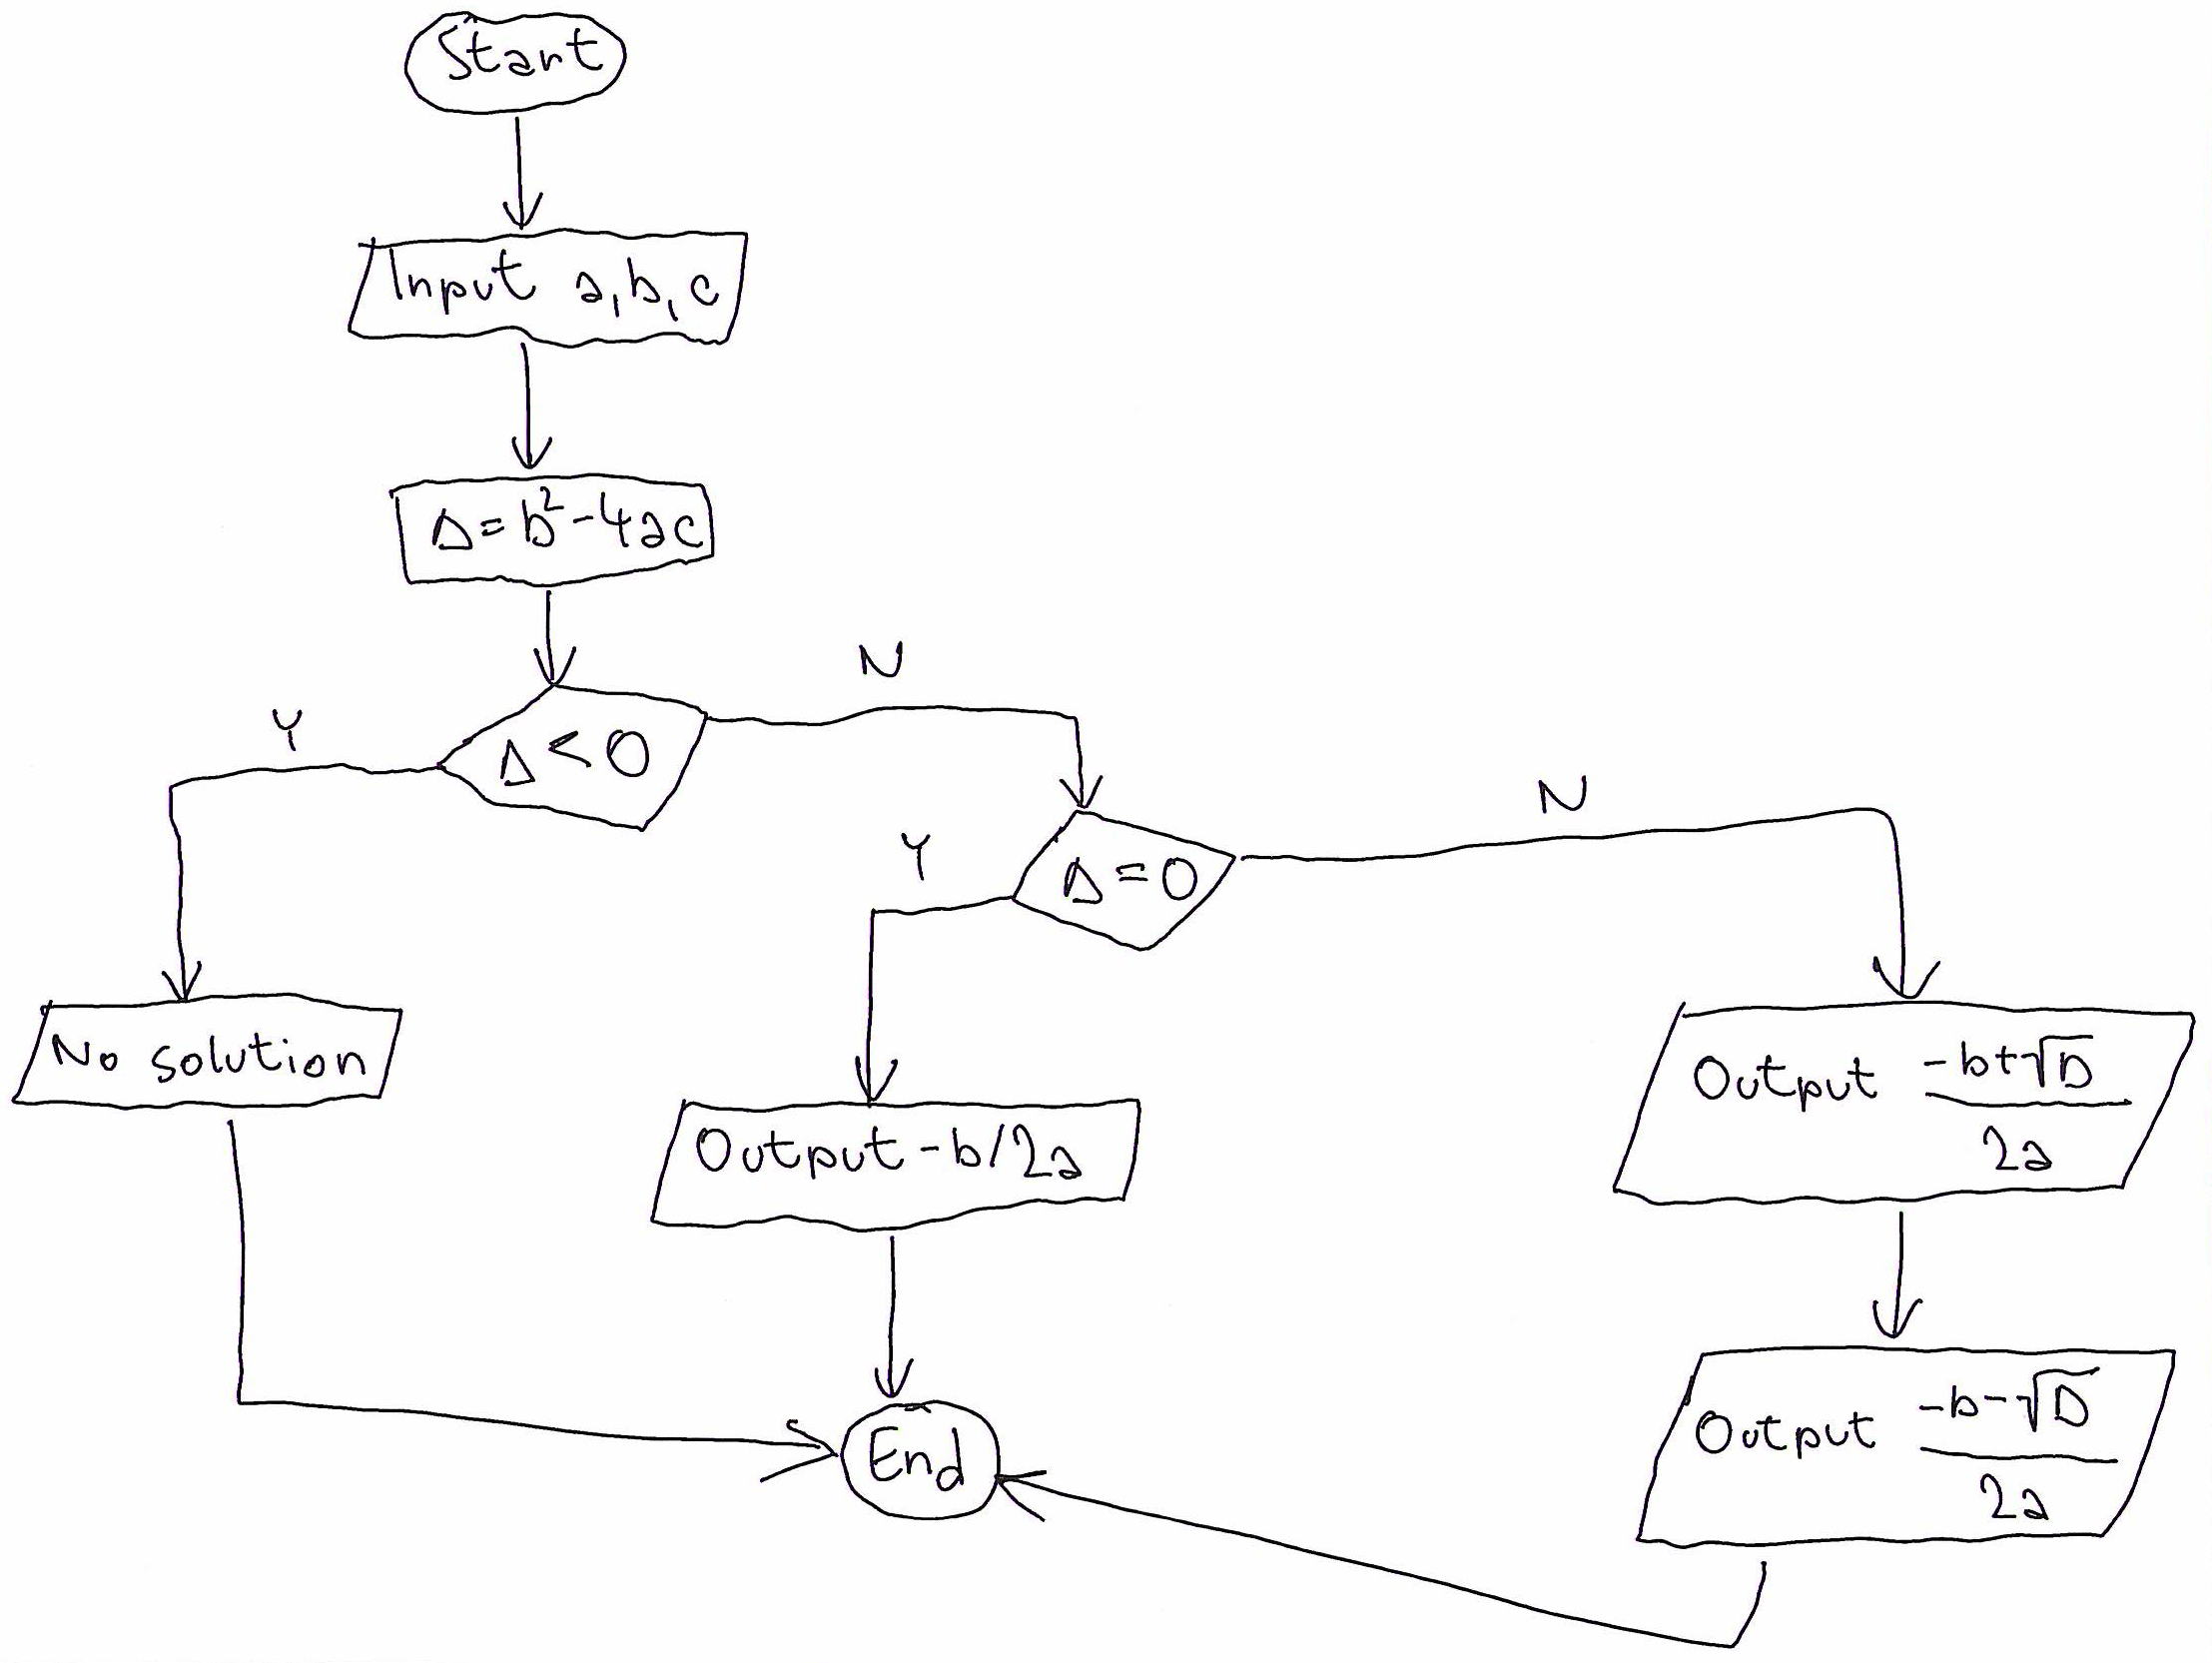 Start
Input a, b, c
Δ = b² - 4ac
N
Y
Δ < 0
N
Y
Δ = 0
No solution
Output (-b+√D)/2a
Output -b/2a
Output (-b-√D)/2a
End